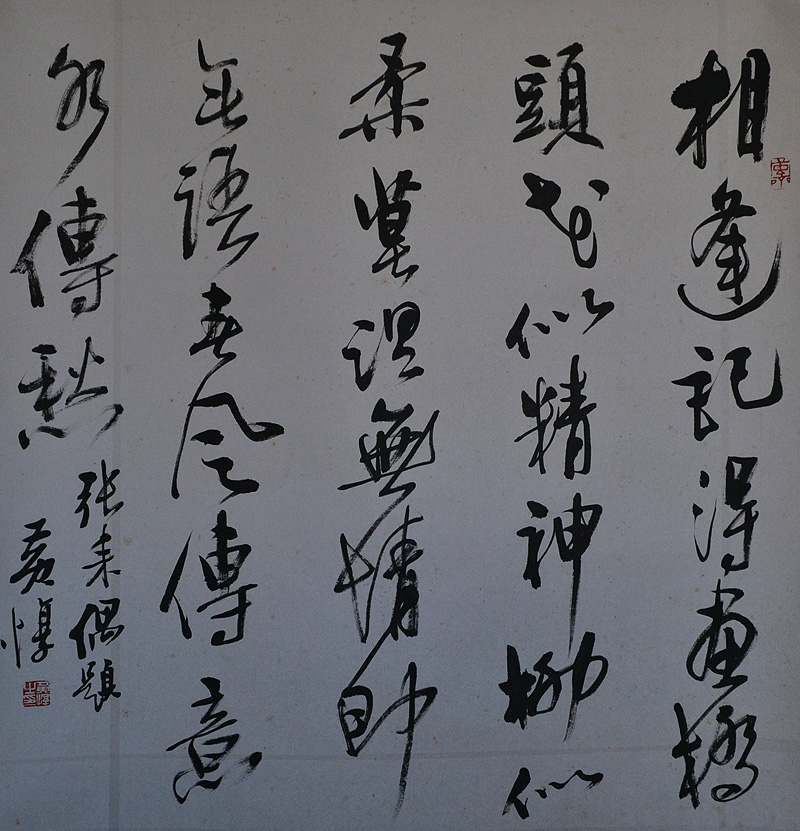 相逢記得畫橋
頭花似精神柳似
柔莫謂無情即
無語春風傳意
水傳愁
張耒偶題
黃惇